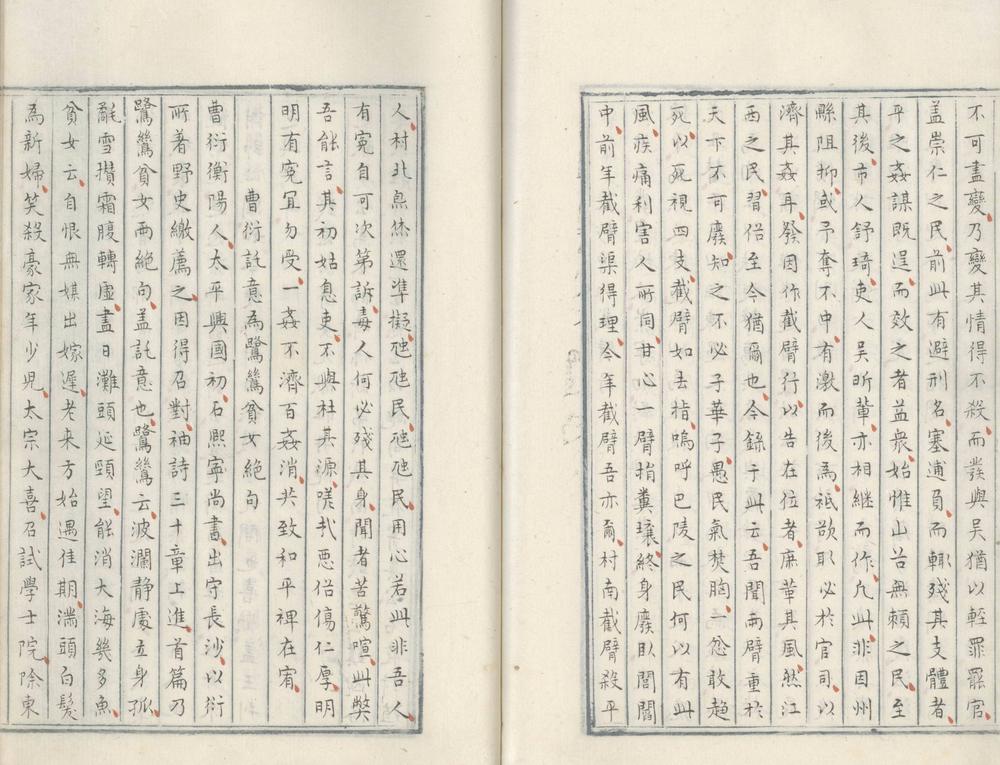 不可盡變乃變其情得不殺而發與吳猶以輕罪罷官
盖崇仁之民前此有避刑名塞逋負而輒殘其支體者
平之姦謀既逞而效之者益衆始惟山谷無頼之民至
其後市人舒琦吏人吳昕輩亦相継而作凢此非因州
縣阻抑或予奪不中有激而後為祗欲取必於官司以
濟其姦耳發因作截臂行以告在位者庻革其風然江
西之民習俗至今猶爾也今錄于此云吾聞兩臂重於
天下不可廢知之不必子華子愚民氣焚胸一忿敢趋
死以死視四支截臂如去指嗚呼巴陵之民何以有此
風疾痛利害人所同甘心一臂捐糞壤終身廢臥閭閻
中前年截臂渠得理今年截臂吾亦爾村南截臂殺平
人村北𤋮然還凖擬虺民虺虺民用心若此非吾人
有寃自可次第訴毒人何必殘其身聞者苦驚喧此獘
吾能言其初姑息吏不與杜其源嗟㢤悪俗傷仁厚明
明有寃宜勿受一姦不濟百姦消共致和平裨在宥
曹衍託意為鷺鷥貧女絶句
曹衍衡陽人太平興國初石熈寧尚書出守長沙以衍
所著野史繳薦之因得召對袖詩三十章上進首篇乃
鷺鷥貧女兩絶句盖託意也鷺鷥云波瀾静處立身孤
毳雪攢霜腹轉虚盡日灘頭延頸望能消大海幾多魚
貧女云自恨無媒出嫁遲老来方始遇佳期滿頭白髮
為新婦笑殺豪家年少児太宗大喜召試學士院除東